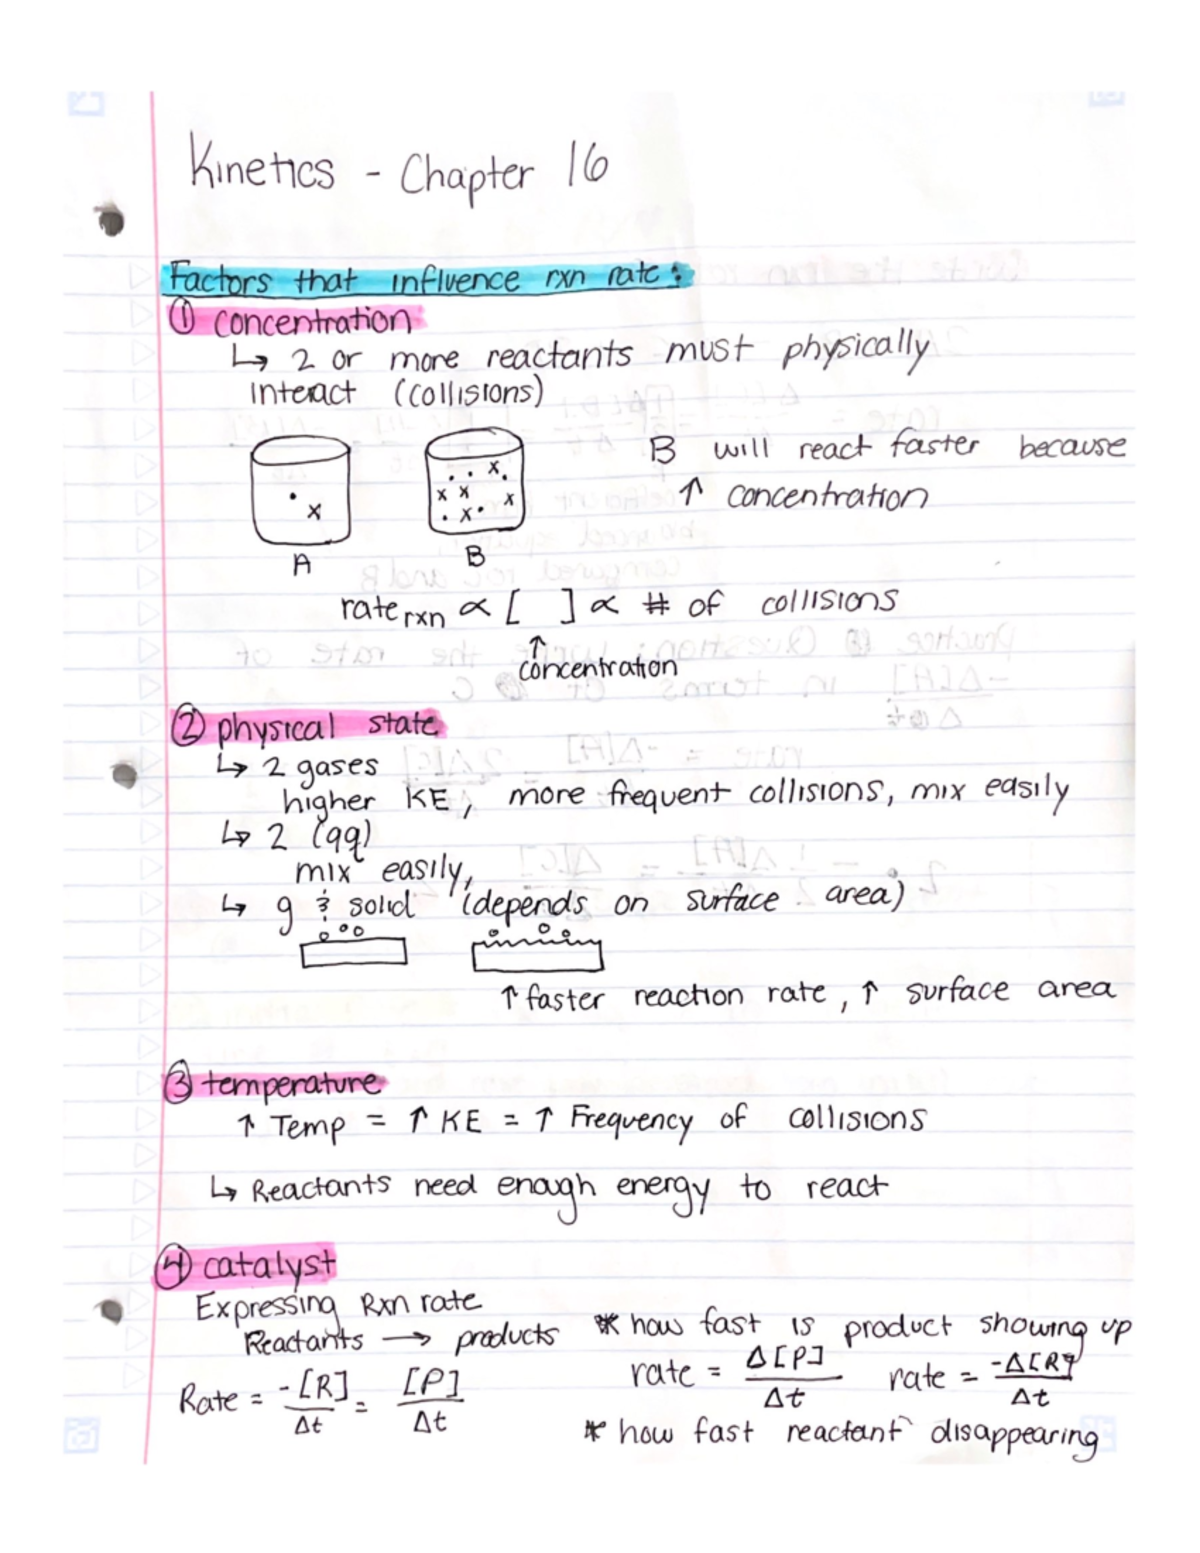 Kinetics - Chapter 16
Factors that influence rxn rate:
① concentration
↳ 2 or more reactants must physically
interact (collisions)
B will react faster because
↑ concentration
A
B
rate rxn ∝ [ ] ∝ # of collisions
↑
concentration
② physical state
↳ 2 gases
higher KE, more frequent collisions, mix easily
↳ 2 (aq)
mix easily,
↳ g & solid (depends on surface area)
↑ faster reaction rate, ↑ surface area
③ temperature
↑ Temp = ↑ KE = ↑ Frequency of collisions
↳ Reactants need enough energy to react
④ catalyst
Expressing Rxn rate
Reactants → products
Rate = -[R]/Δt = [P]/Δt
* how fast is product showing up
rate = Δ[P]/Δt rate = -Δ[R]/Δt
* how fast reactant disappearing